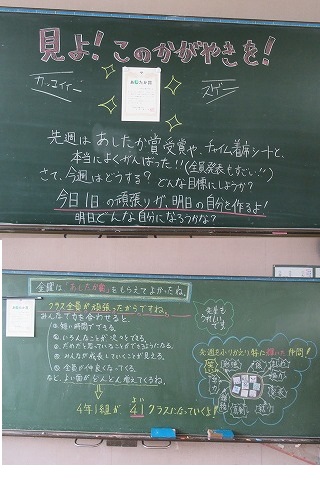 見よ!このかがやきを!
カッコイイー
スゲー
先週はあしたか賞受賞や、チャイム着席シートと、
本当によくがんばった!!(全員発表もすごい!!)
さて、今週はどうする?どんな目標にしようか?
今日1日の頑張りが、明日の自分を作るよ!
明日どんな自分になろうかな?
金曜は「あしたか賞」をもらえてよかったね。
クラス全員が頑張ったからですね。
みんなで力を合わせると
①短い時間でできる。
②いろんなことが次々とできる。
③だめだと思っていることができるようになる。
④みんなが成長していくことが見える。
⑤全員が仲良くなってくる。
など、よい面がどんどん増えてくるね。
4年1組が
よい
41
クラスになっていくよ!
先生も
うれしい
です
先週をふりかえり特に輝いた仲間!